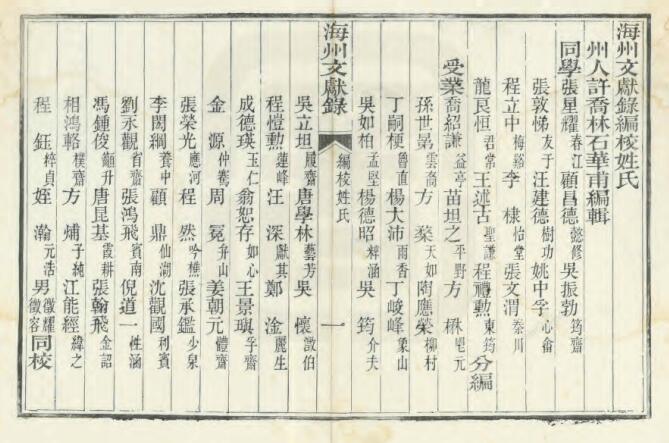 海州文獻錄編校姓氏
州人許喬林石華甫編輯
同學張星耀春江 顧昌德懿修 吳振勃筠齋
張敦悌友于 汪建德樹功 姚中孚心畬
程立中梅谿 李棣怡堂 張文渭秦川
龍良恒君常 王述古聖謙 程禮勲東筠 分編
受業喬紹謙益亭 苗坦之平野 方楙皂元
孫世昜雲裔 方棻天如 陶應榮柳村
丁嗣梗魯直 楊大沛雨香 丁峻峰象山
吳如柏孟堅 楊德昭稗涵 吳筠介夫
海州文獻錄 編校姓氏 一
吳立坦履齋 唐學林藝芳 吳懷澂伯
程愷勲蓮峰 汪深獻其 鄭淦麗生
成德瑛玉仁 翁恕存如心 王景璵孚齋
金源仲騫 周冕弁山 姜朝元體齋
張榮光應河 程然吟樵 張承鑑少泉
李閎綱養中 顧鼎仙湖 沈觀國利賓
劉永觀省齋 張鴻飛賓南 倪道一性涵
馮鍾俊 唐昆基霞耕 張翰飛金詔
相鴻輅樸齋 方煏子純 江能經緯之
程鈺梓貞 姪瀚元浩 男徵耀徵容 同校